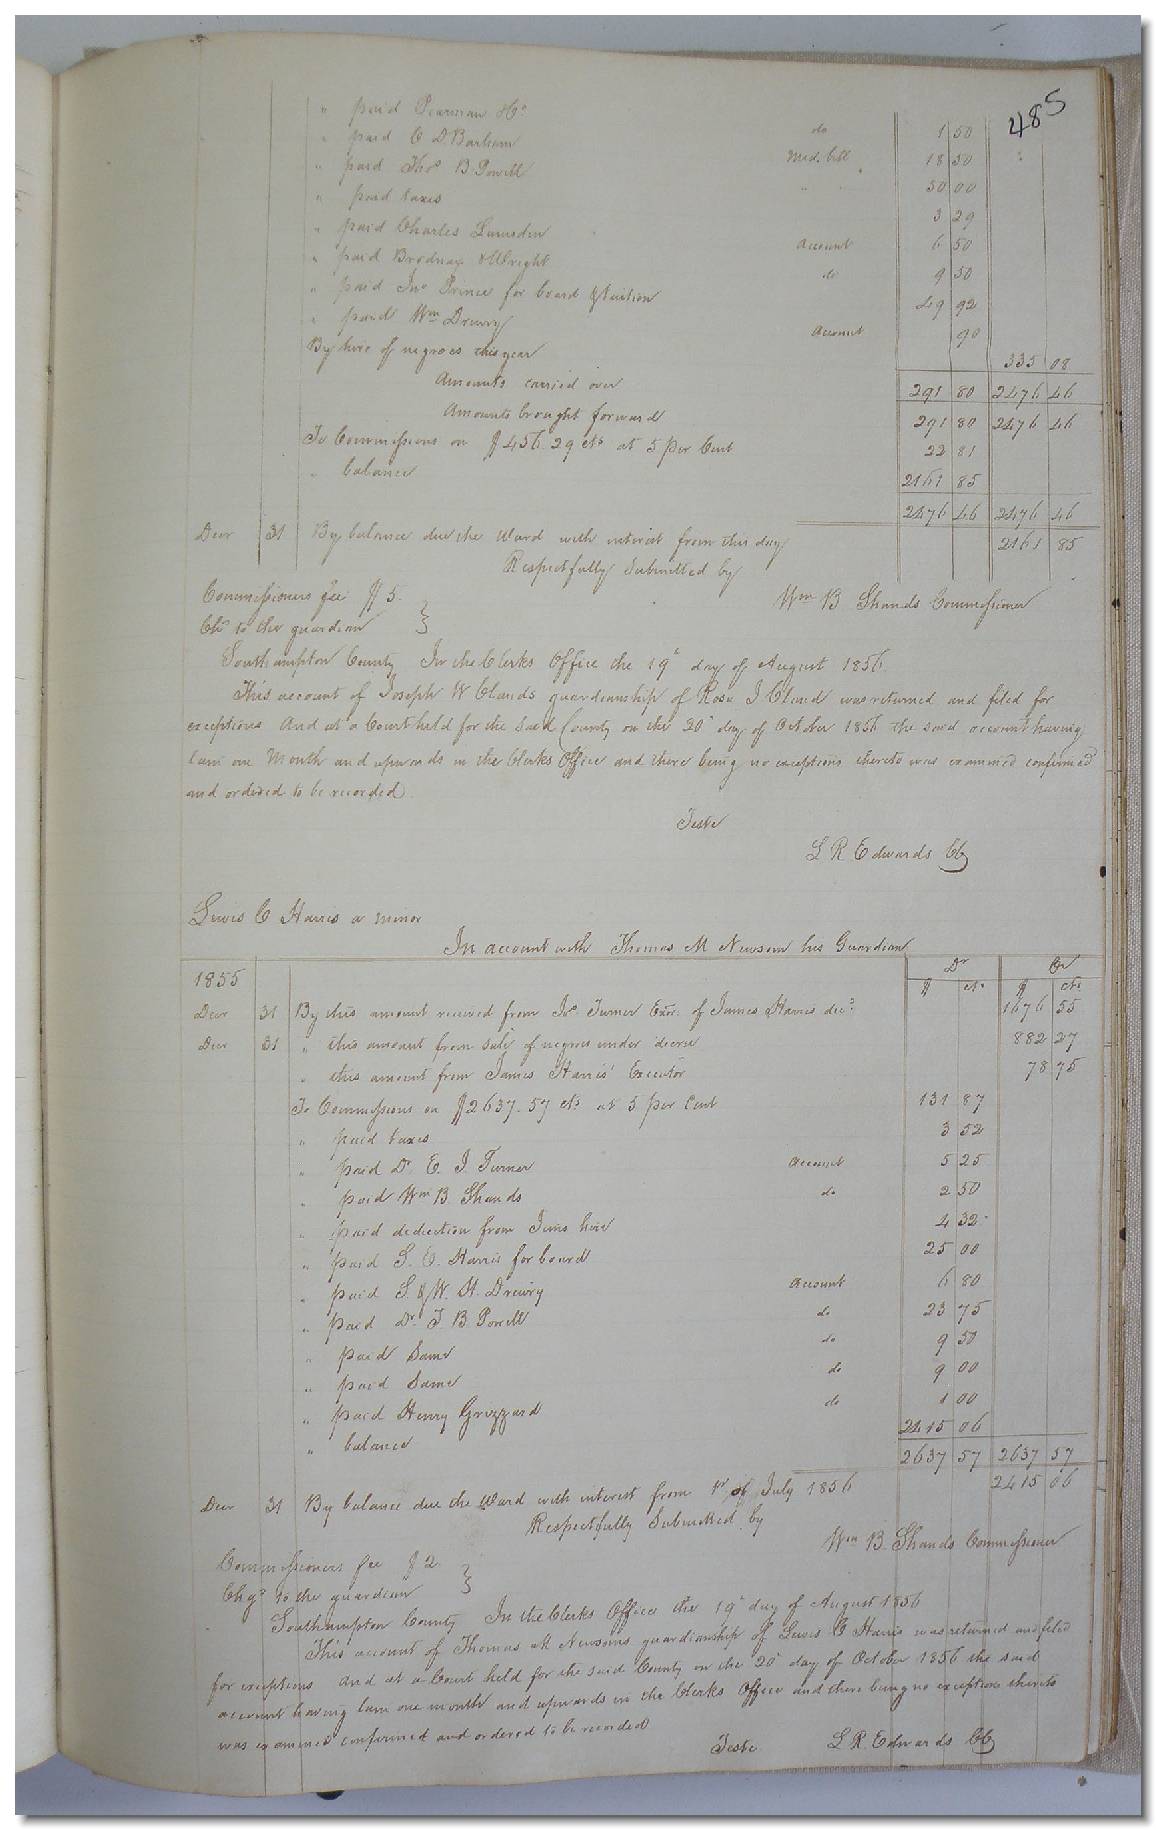 485
" paid Pearman & Co do 1 50
" paid C D Barham Med. bill 18 50
" paid Thos B. Powell " " 30 00
" paid taxes 3 29
" paid Charles Lumsden Account 6 50
" paid Brodnax & Wright do 9 50
" paid Jno Prince for board & tuition 49 92
" paid Wm Drewry Account 90
By hire of negroes this year 335 08
Amounts carried over 291 80 2476 46
Amounts brought forward 291 80 2476 46
To Commissions on $456.29 cts at 5 per Cent 22 81
" balance 2161 85
2476 46 2476 46
Decr 31 By balance due the Ward with interest from this day 2161 85
Respectfully Submitted by
Wm B Shands Commissioner
Commissioners fee $5.
Chd to the guardian
Southampton County In the Clerks Office the 19th day of August 1856.
This account of Joseph W Clauds guardianship of Rosa J Claud was returned and filed for
exceptions And at a Court held for the Said County on the 20th day of October 1856 the said account having
lain one Month and upwards in the Clerks Office and there being no exceptions thereto was examined confirmed
and ordered to be recorded.
Teste
L R Edwards CC
Lewis C Harris a minor
In account with Thomas M Newsom his Guardian
1855 Dr Cr
$ cts $ cts
Decr 31 By this amount received from Jno Turner Exor. of James Harris decd 1676 55
Decr 31 " this amount from sale of negroes under decree 882 27
" this amount from James Harris' Executor 78 75
To Commissions on $2637.57 cts at 5 per Cent 131 87
" paid taxes 3 52
" paid Dr. E. J. Turner Account 5 25
" paid Wm B. Shands do 2 50
" paid deduction from Jims hire 4 32
" paid S. E. Harris for board 25 00
" paid S. & W. H. Drewry Account 6 80
" paid Dr. T. B. Powell do 23 75
" paid Same do 9 50
" paid Same do 9 00
" paid Henry Grizzard do 1 00
" balance 2415 06
2637 57 2637 57
Decr 31 By balance due the Ward with interest from 1st of July 1856 2415 06
Respectfully Submitted by
Wm B. Shands Commissioner
Commissioners fee $2.
Chgd to the guardian
Southampton County In the Clerks Office the 19th day of August 1856
This account of Thomas M Newsoms guardianship of Lewis C Harris was returned and filed
for exceptions And at a Court held for the said County on the 20th day of October 1856 the said
account having lain one month and upwards in the Clerks Office and there being no exceptions thereto
was examined confirmed and ordered to be recorded
Teste L R. Edwards CC